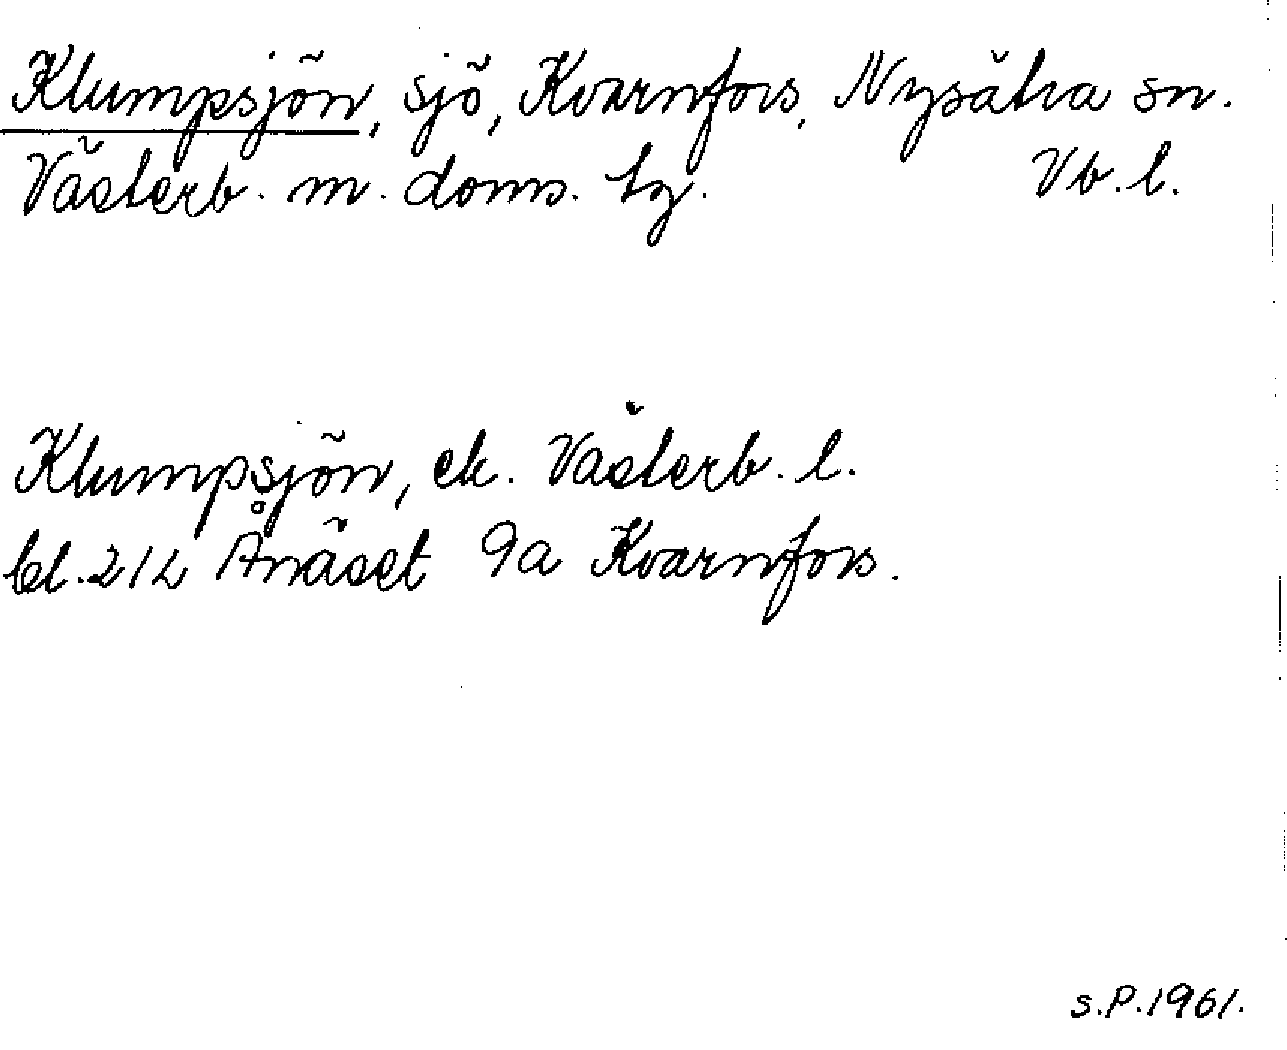 Klumpsjön, sjö, Kvarnfors, Nysätra sn.
Västerb. m. doms. tg. Vb. l.
Klumpsjön, ek. Västerb. l.
bl. 212 Ånäset 9a Kvarnfors.
s.P.1961.